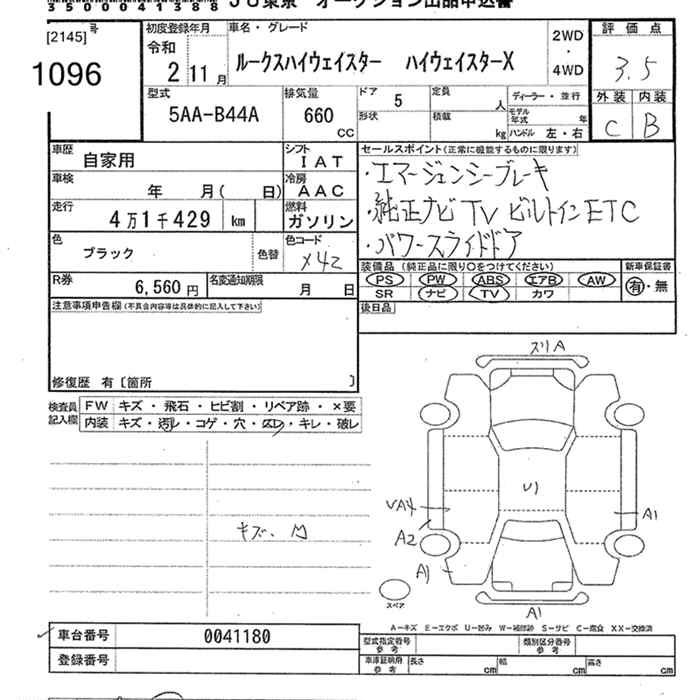 35000041388 JU東京 オークション出品申込書
[2145]号
1096
初度登録年月
令和
2 11月
車名・グレード
ルークスハイウェイスター ハイウェイスターX
2WD
・
4WD
評価点
3.5
外装 内装
C B
型式
5AA-B44A
排気量
660
CC
ドア 5 定員 人
形状 積載 kg
ディーラー・並行
モデル年式 年
ハンドル 左・右
車歴 自家用
シフト IAT
車検 年 月( 日)
冷房 AAC
走行 4万1千429 km
燃料 ガソリン
色 ブラック 色替
色コード X42
R券 6,560円
名変通知期限 月 日
注意事項申告欄(不具合内容等は具体的に記入して下さい)
修復歴 有〔箇所 〕
セールスポイント(正常に機能するものに限ります)
・エマージェンシーブレーキ
・純正ナビ TV ビルトインETC
・パワースライドドア
装備品(純正品に限り○をつけてください)
PS PW ABS エアB AW
SR ナビ TV カワ
新車保証書
有・無
後日品
検査員記入欄
FW キズ・飛石・ヒビ割・リペア跡・×要
内装 キズ・汚レ・コゲ・穴・スレ・キレ・破レ
キズ、凹
スリA
U1
UA4
A2
A1
A1
A1
スペア
A-キズ E-エクボ U-凹み W-補修跡 S-サビ C-腐食 XX-交換済
車台番号 0041180
登録番号
型式指定番号 参考
類別区分番号 参考
車庫証明用 参考 長さ cm 幅 cm 高さ cm